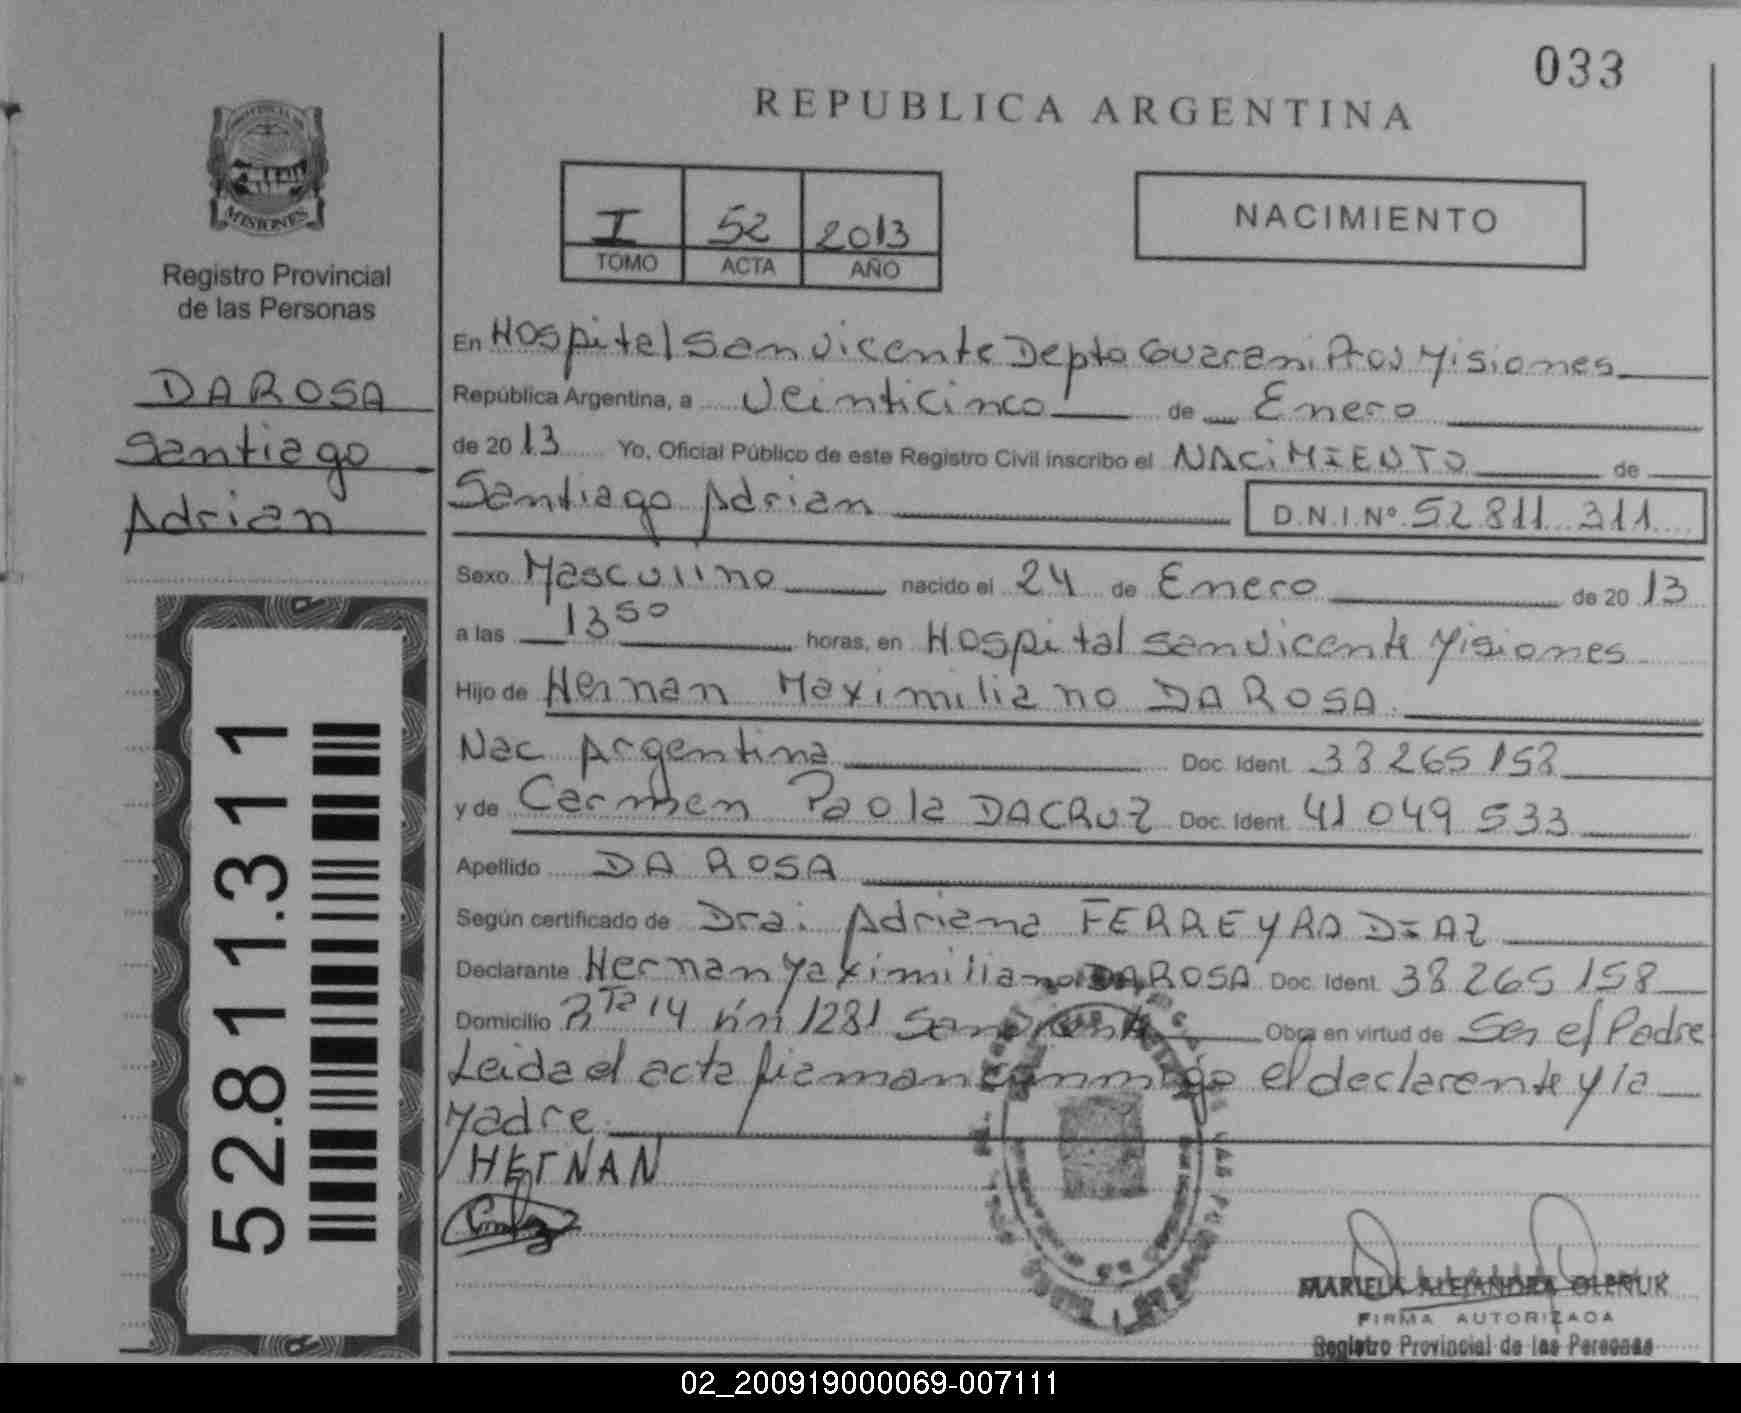 033
REPUBLICA ARGENTINA
PROVINCIA DE
MISIONES
Registro Provincial
de las Personas
I 52 2013
TOMO ACTA AÑO
NACIMIENTO
DA ROSA
Santiago
Adrian
52.811.311
En Hospital San Vicente Depto Guarani Prov Misiones
República Argentina, a Veinticinco de Enero
de 2013 Yo, Oficial Público de este Registro Civil inscribo el NACIMIENTO de
Santiago Adrian D.N.I.Nº 52 811 311
Sexo Masculino nacido el 24 de Enero de 2013
a las 13 50 horas, en Hospital San Vicente Misiones
Hijo de Hernan Maximiliano DA ROSA
Nac Argentina Doc. Ident. 38 265 158
y de Carmen Paola DACRUZ Doc. Ident. 41 049 533
Apellido DA ROSA
Según certificado de Dra: Adriana FERREYRA DIAZ
Declarante Hernan Maximiliano DA ROSA Doc. Ident. 38 265 158
Domicilio Rta 14 km 1281 San Vicente Obra en virtud de Ser el Padre
Leida el acta firman conmigo el declarante y la
Madre
HERNAN
MARIELA ALEJANDRA OLENIUK
FIRMA AUTORIZADA
Registro Provincial de las Personas
02_200919000069-007111